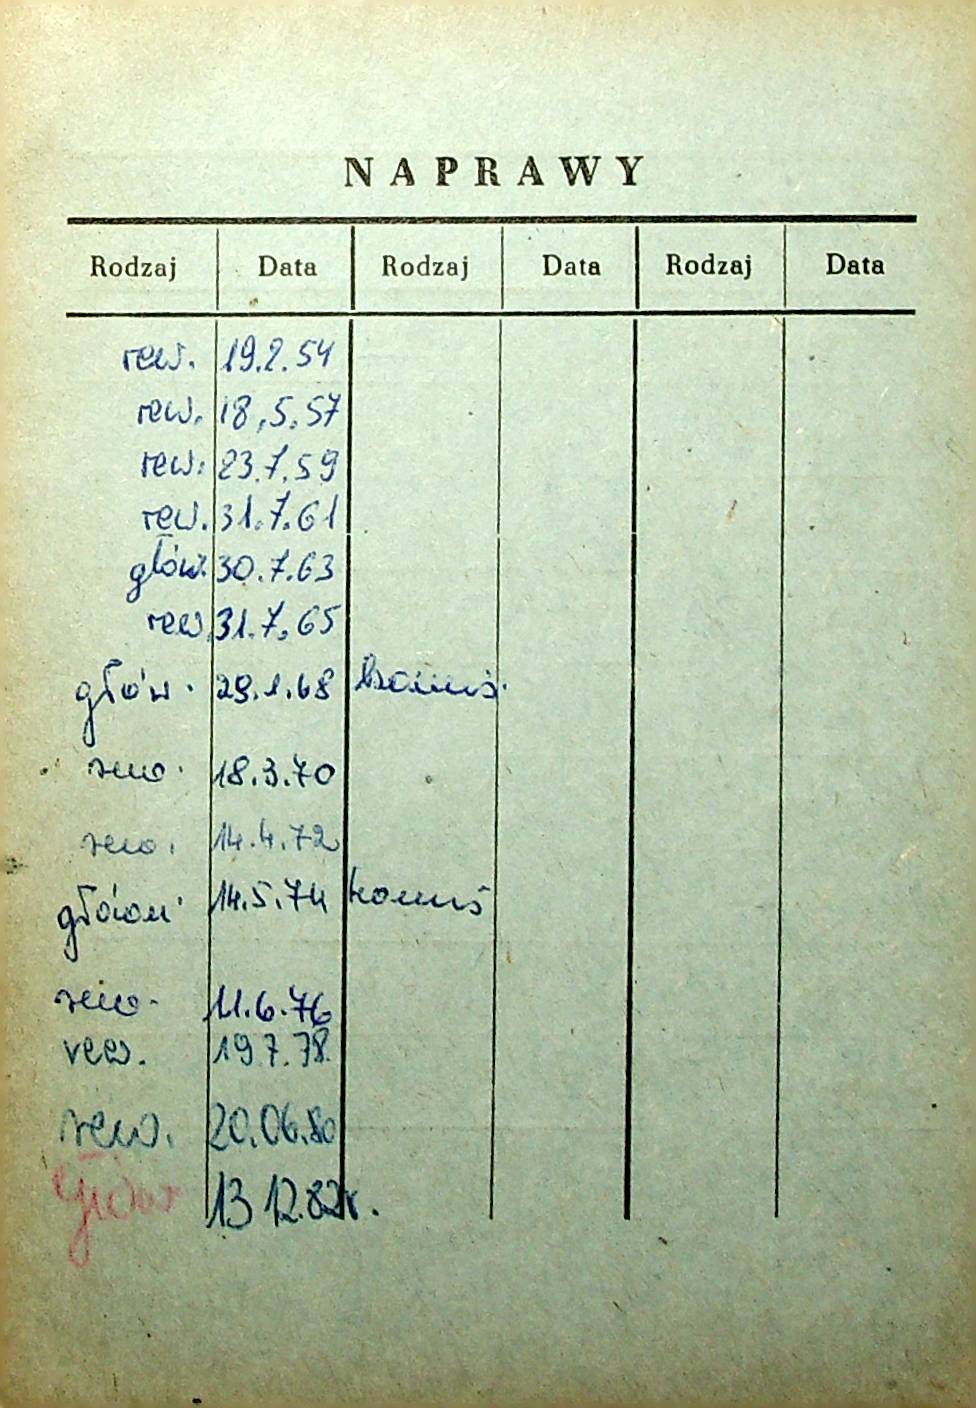 NAPRAWY
Rodzaj Data Rodzaj Data Rodzaj Data
rew. 19.2.54
rew. 18.5.57
rew. 23.7.59
rew. 31.7.61
głów. 30.7.63
rew. 31.7.65
głów. 29.1.68
rew. 18.3.70
rew. 14.4.72
główn. 14.5.74
rew. 11.6.76
rew. 19 7.78.
rew. 20.06.80
głów 13 12.82r.